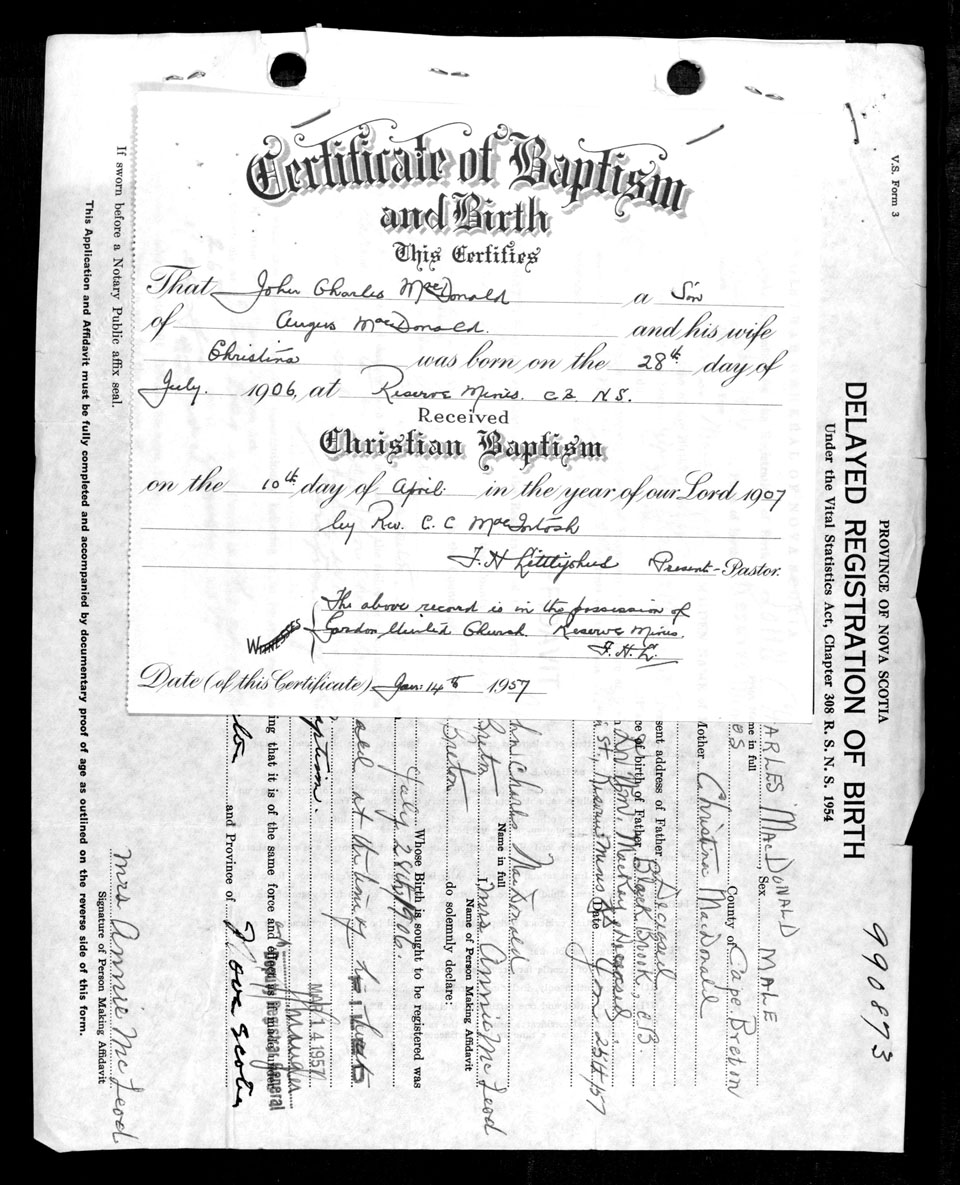 Certificate of Baptism
and Birth
This Certifies
That John Charles MacDonald a Son
of Angus MacDonald. and his wife
Christina was born on the 28th day of
July. 1906, at Reserve Mines. C.B. N.S.
Received
Christian Baptism
on the 10th day of April in the year of our Lord 1907
by Rev. C. C MacIntosh
F. H. Present- Pastor.
The above record is in the possession of
Gordon United Church. Reserve Mines.
F. H. L.
WITNESSES
Date (of this Certificate) Jan. 14th 1957
V.S. Form 3
PROVINCE OF NOVA SCOTIA
DELAYED REGISTRATION OF BIRTH
Under the Vital Statistics Act, Chapter 308 R. S. N. S. 1954
990873
ARLES MACDONALD, Sex MALE
me in full
County of Cape Breton
Mother Christina MacDonald
sent address of Father Deceased
ce of birth of Father Black Brook, C.B.
Dr Wm. Mackay Deceased
Date Jan 25th/57
hn Charles MacDonald
Name in full
Breton I, Mrs Annie McLeod
Name of Person Making Affidavit
Breton do solemnly declare:
Whose Birth is sought to be registered was
July 28th, 1906.
at the time of his birth
MAR 14 1957
aptism.
ing that it is of the same force and
Deputy Registrar General
lton and Province of Nova Scotia
Mrs Annie McLeod
Signature of Person Making Affidavit
If sworn before a Notary Public affix seal.
This Application and Affidavit must be fully completed and accompanied by documentary proof of age as outlined on the reverse side of this form.